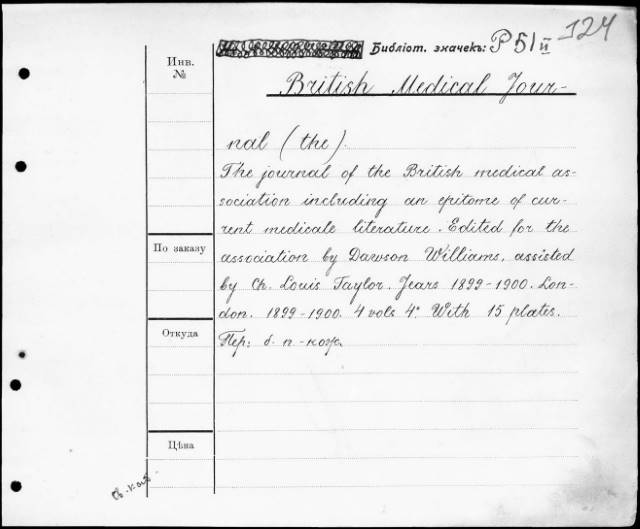 124
Библіот. значекъ: P 51 II
Инв.
№
British Medical Jour-
nal (the).
The journal of the British medical as-
sociation including an epitome of cur-
rent medicale literature. Edited for the
По заказу
association by Dawson Williams, assisted
by Ch. Louis Taylor. Years 1899-1900. Lon-
don. 1899-1900. 4 vols 4° With 15 plates.
Откуда
Пер: б. п-кож.
Цѣна